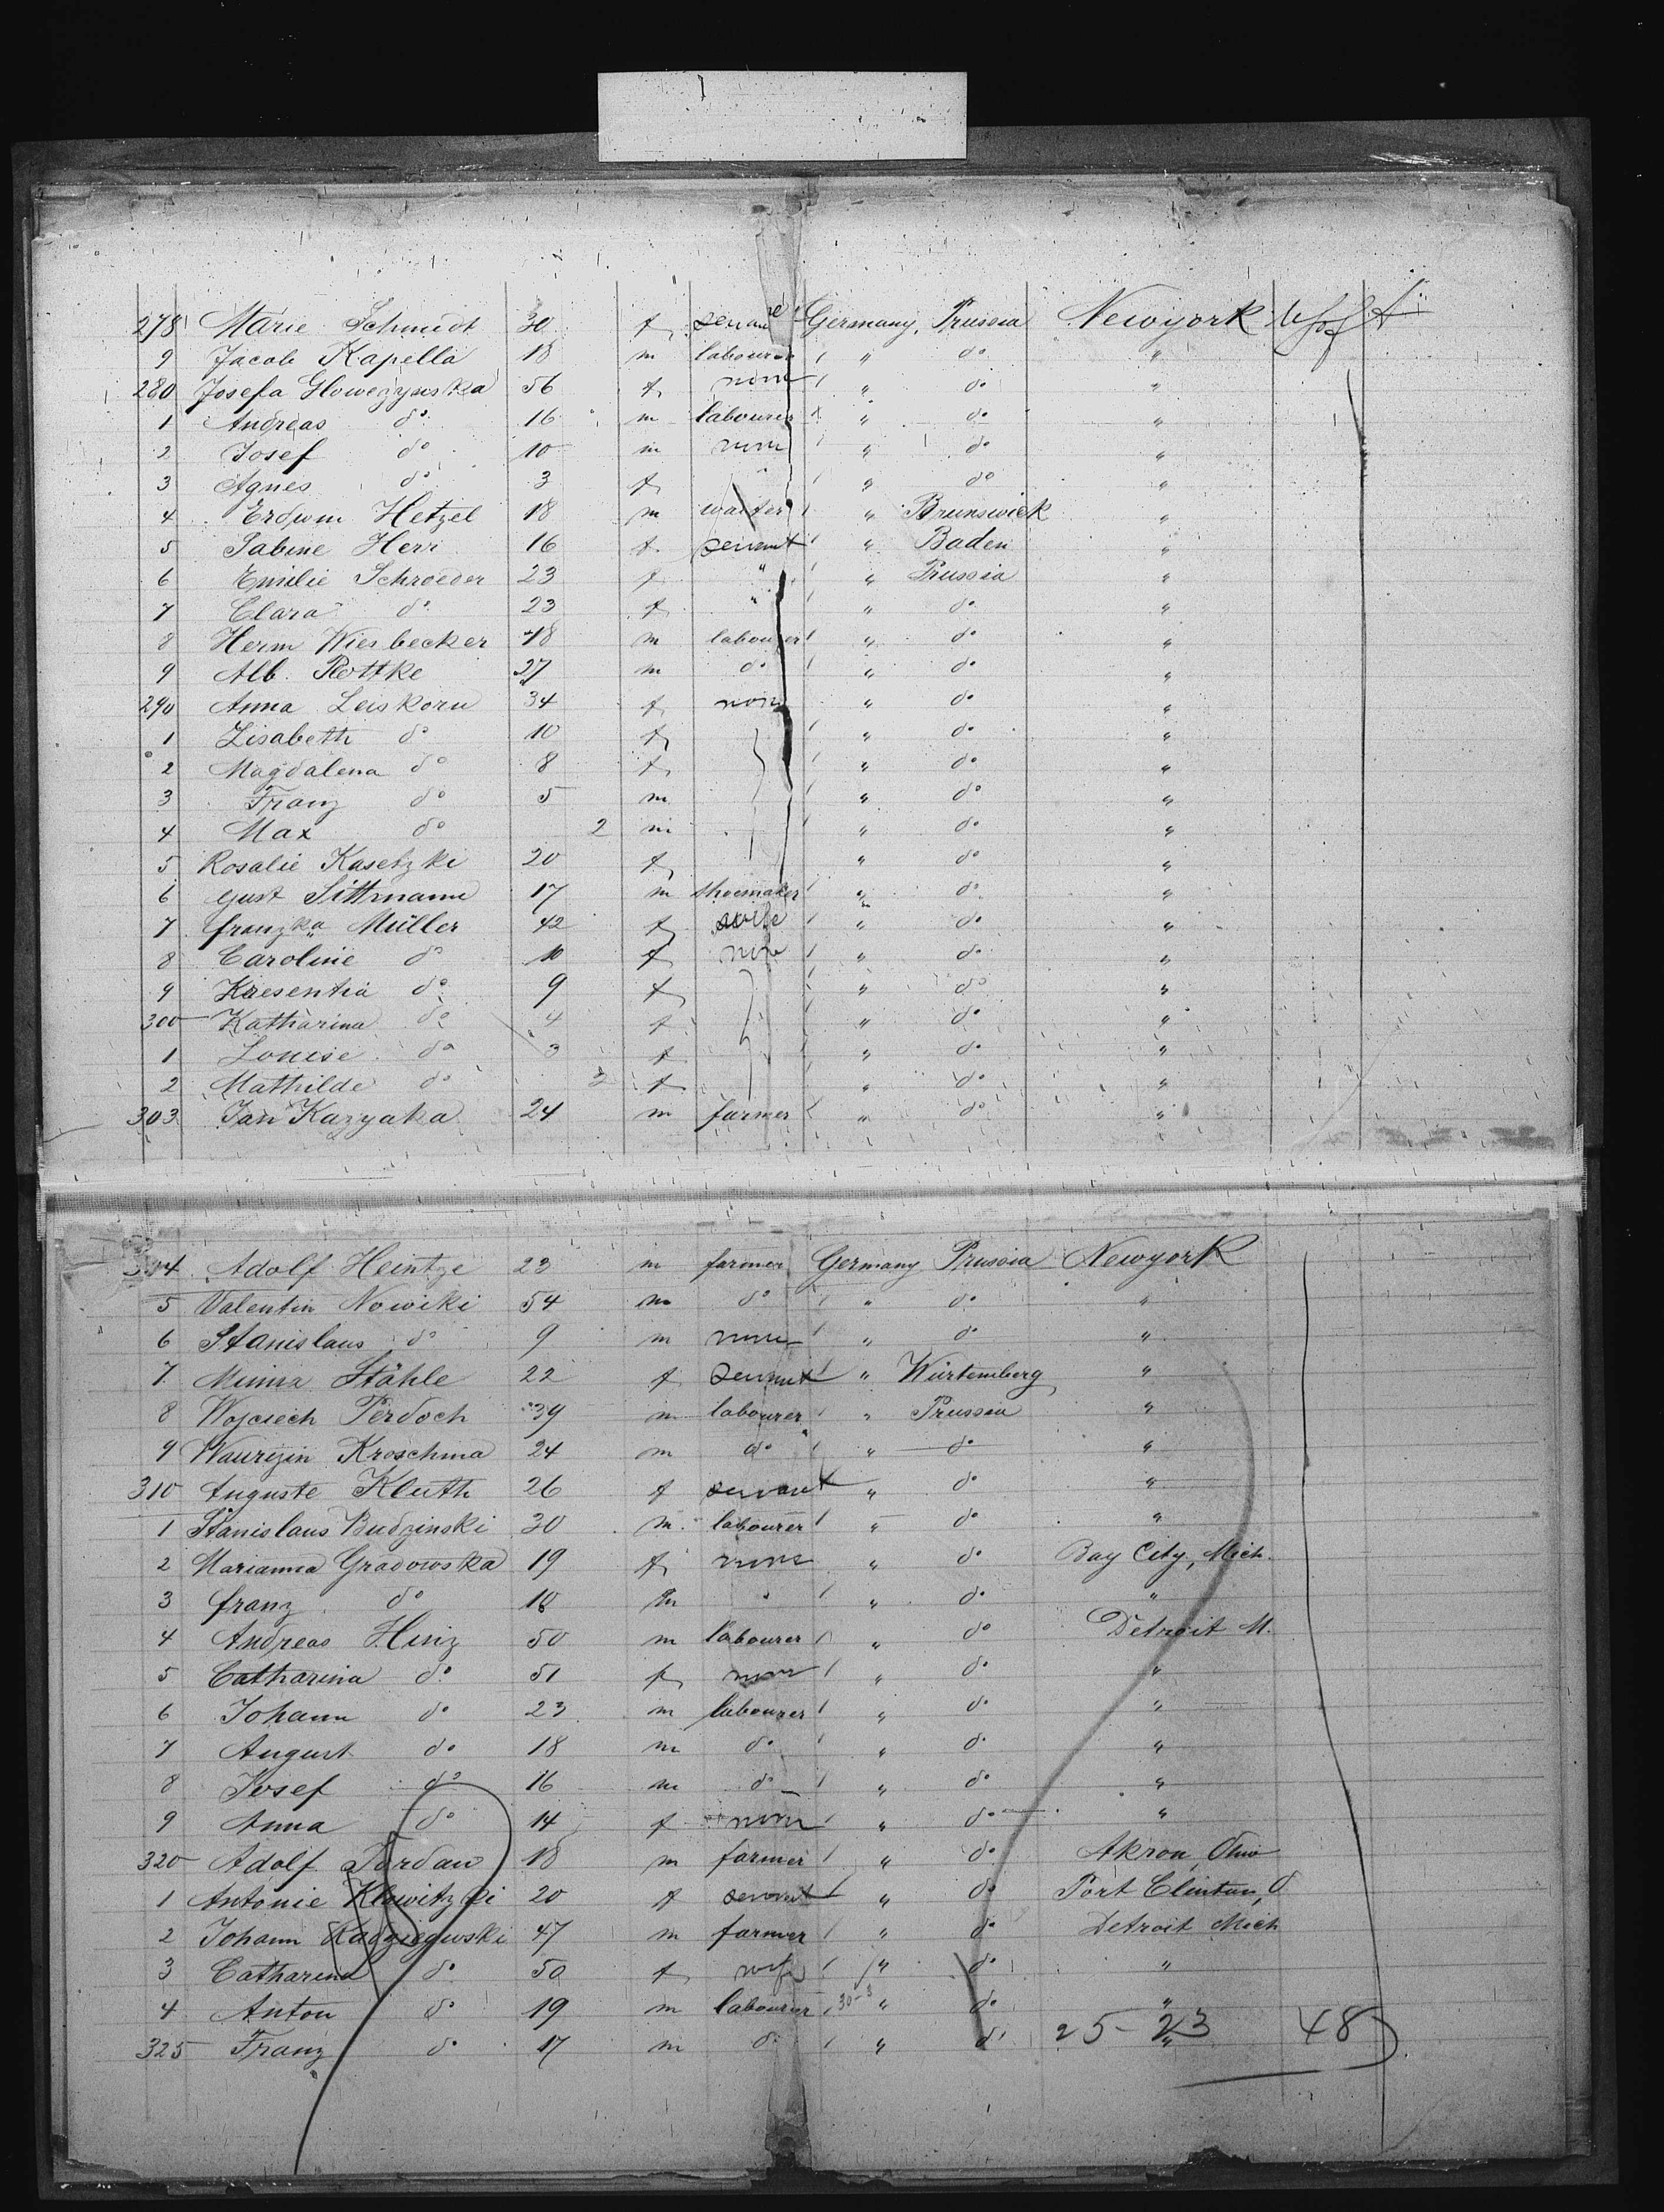 278 Marie Schmidt 30 f servant Germany, Prussia Newyork
9 Jacob Kapella 18 m labourer " do "
280 Josefa Glowczynska 56 f none " do "
1 Andreas do 16 m labourer " do "
2 Josef do 10 m none " do "
3 Agnes do 3 f " do "
4 Erdwin Hetzel 18 m waiter " Brunswick "
5 Sabine Herr 16 f servant " Baden "
6 Emilie Schroeder 23 f " " Prussia "
7 Clara do 23 f " " do "
8 Herm Wiesbecker 48 m labourer " do "
9 Alb. Rottke 27 m do " do "
290 Anna Leiskorn 34 f none " do "
1 Lisabeth do 10 f " do "
2 Magdalena do 8 f " do "
3 Franz do 5 m " do "
4 Max do 2 m " do "
5 Rosalie Kasetzki 20 f " do "
6 Gust Sittmann 17 m shoemaker " do "
7 franzka Müller 42 f wife " do "
8 Caroline do 10 f none " do "
9 Kresentia do 9 f " do "
300 Katharina do 4 f " do "
1 Louise do 3 f " do "
2 Mathilde do f " do "
303 Jan Kazyaka 24 m farmer " do "
304 Adolf Heintze 23 m farmer Germany Prussia Newyork
5 Valentin Nowiki 54 m do " do "
6 Stanislaus do 9 m none " do "
7 Minna Stähle 22 f servant " Würtemberg "
8 Wojciech Perdoch 39 m labourer " Prussia "
9 Waurzin Kroschma 24 m do " do "
310 Auguste Kluth 26 f servant " do "
1 Stanislaus Budzinski 30 m labourer " do "
2 Marianna Gradowska 19 f none " do Bay City, Mich.
3 franz do 10 m " " do "
4 Andreas Hinz 50 m labourer " do Detroit M.
5 Catharina do 51 f none " do "
6 Johann do 23 m labourer " do "
7 August do 18 m do " do "
8 Josef do 16 m do " do "
9 Anna do 14 f none " do "
320 Adolf Jordan 18 m farmer " do Akron, Ohio
1 Antonie Klawitzki 20 f servant " do Port Clinton, O
2 Johann Radziejewski 47 m farmer " do Detroit Mich
3 Catharina do 50 f wife " do "
4 Anton do 19 m labourer 30-3 " do "
325 Franz do 17 m do " do "
25-23 48